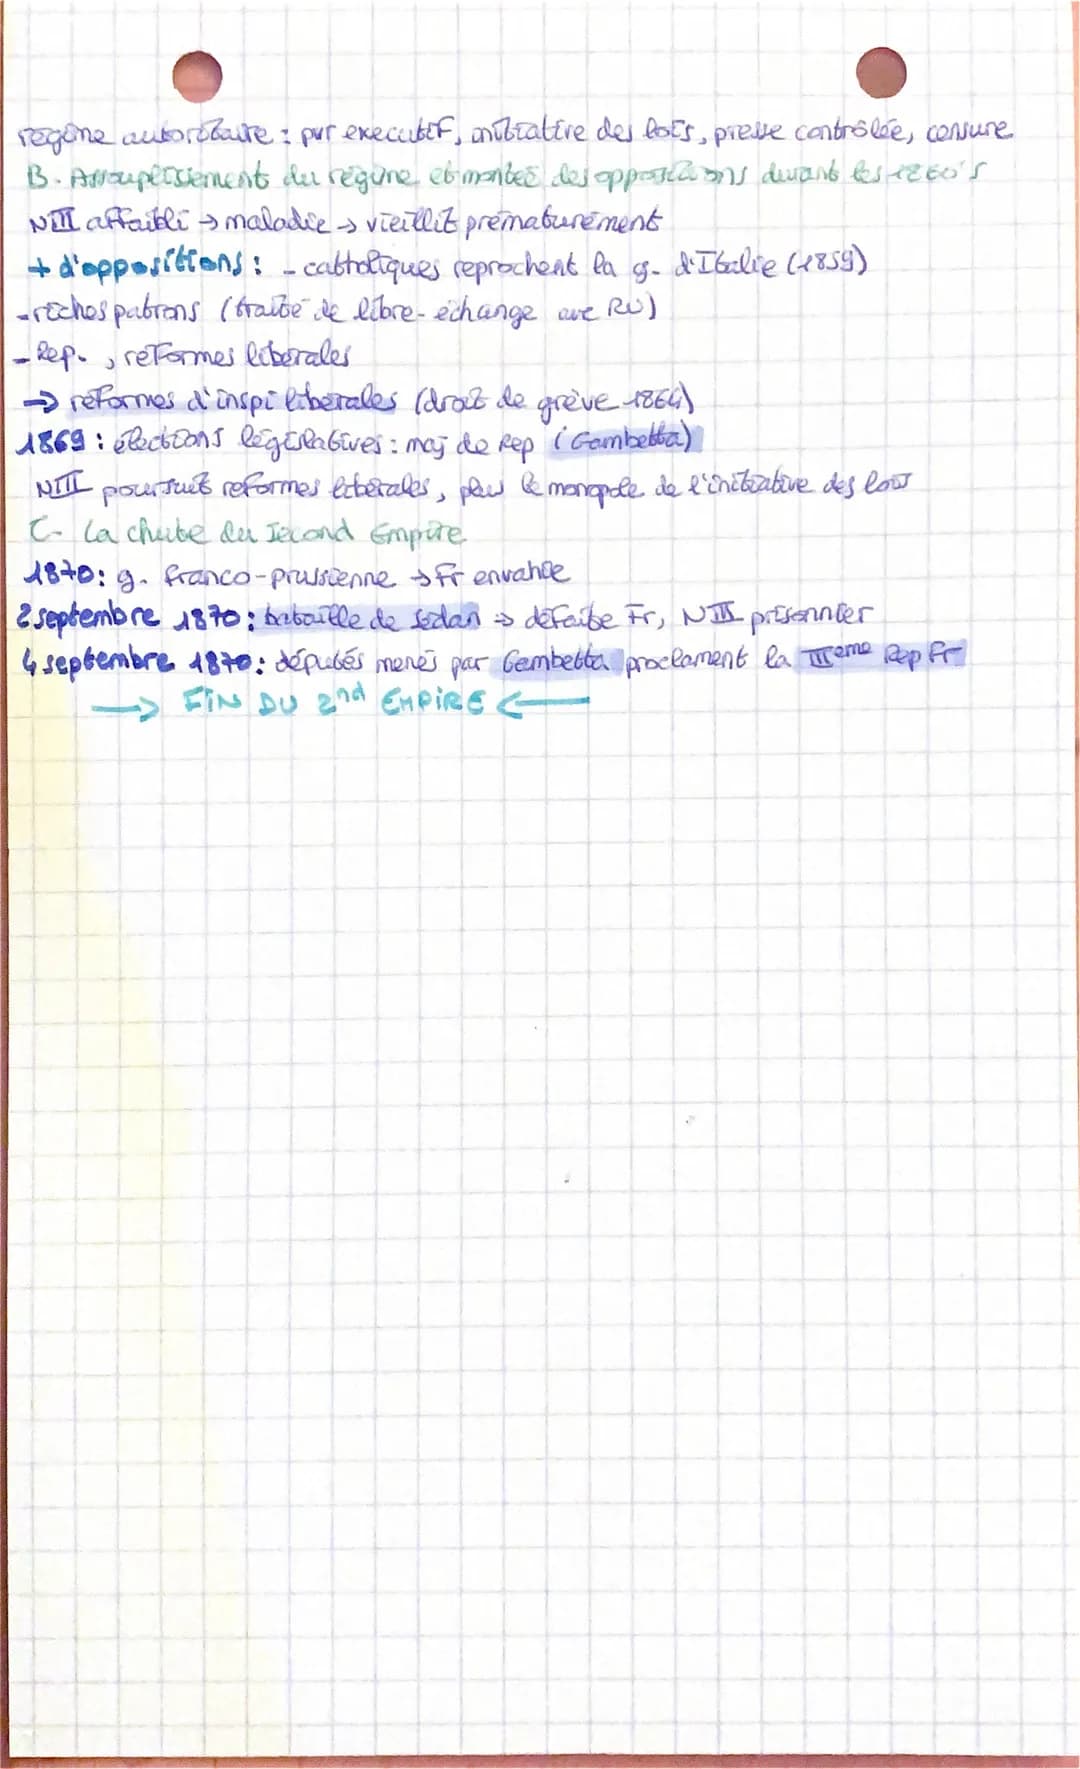 régime autoritaire : pvr executif, initiative des lois, presse contrôlée, censure
B. Assouplissement du régime et montée des oppositions durant les 1860's
NIII affaibli → maladie → vieillit prématurément
+ d'oppositions : - catholiques reprochent la g. d'Italie (1859)
- riches patrons (traité de libre-échange ave RU)
- Rep. , réformes libérales
→ réformes d'inspi libérales (droit de grève 1864)
1869 : élections législatives : maj de Rep (Gambetta)
NIII poursuit reformes libérales, plus le monopole de l'initiative des lois
C- La chute du Second Empire
1870: g. franco-prussienne → Fr envahie
2 septembre 1870 : bataille de Sedan → défaite Fr, NIII prisonnier
4 septembre 1870 : députés menés par Gambetta proclament la IIIeme Rep Fr
→ FIN DU 2nd EMPIRE ←